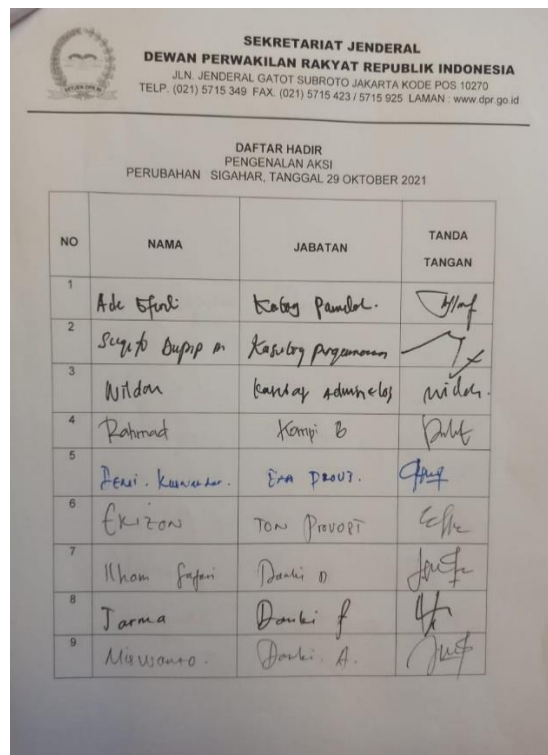 SEKRETARIAT JENDERAL
DEWAN PERWAKILAN RAKYAT REPUBLIK INDONESIA
JLN. JENDERAL GATOT SUBROTO JAKARTA KODE POS 10270
TELP. (021) 5715 349 FAX. (021) 5715 423 / 5715 925 LAMAN : www.dpr.go.id
DAFTAR HADIR
PENGENALAN AKSI
PERUBAHAN SIGAHAR, TANGGAL 29 OKTOBER 2021
NO NAMA JABATAN TANDA TANGAN
1 Ade Efendi Kabag Pamdal.
2
3 Wildan
4 Rahmad Kompi B
5 Deni. PROVT.
6 EKIZON TON PROVOST
7 Ilham Safari Danki D
8 Jarma Danki F
9 Miswanto. Danki. A.